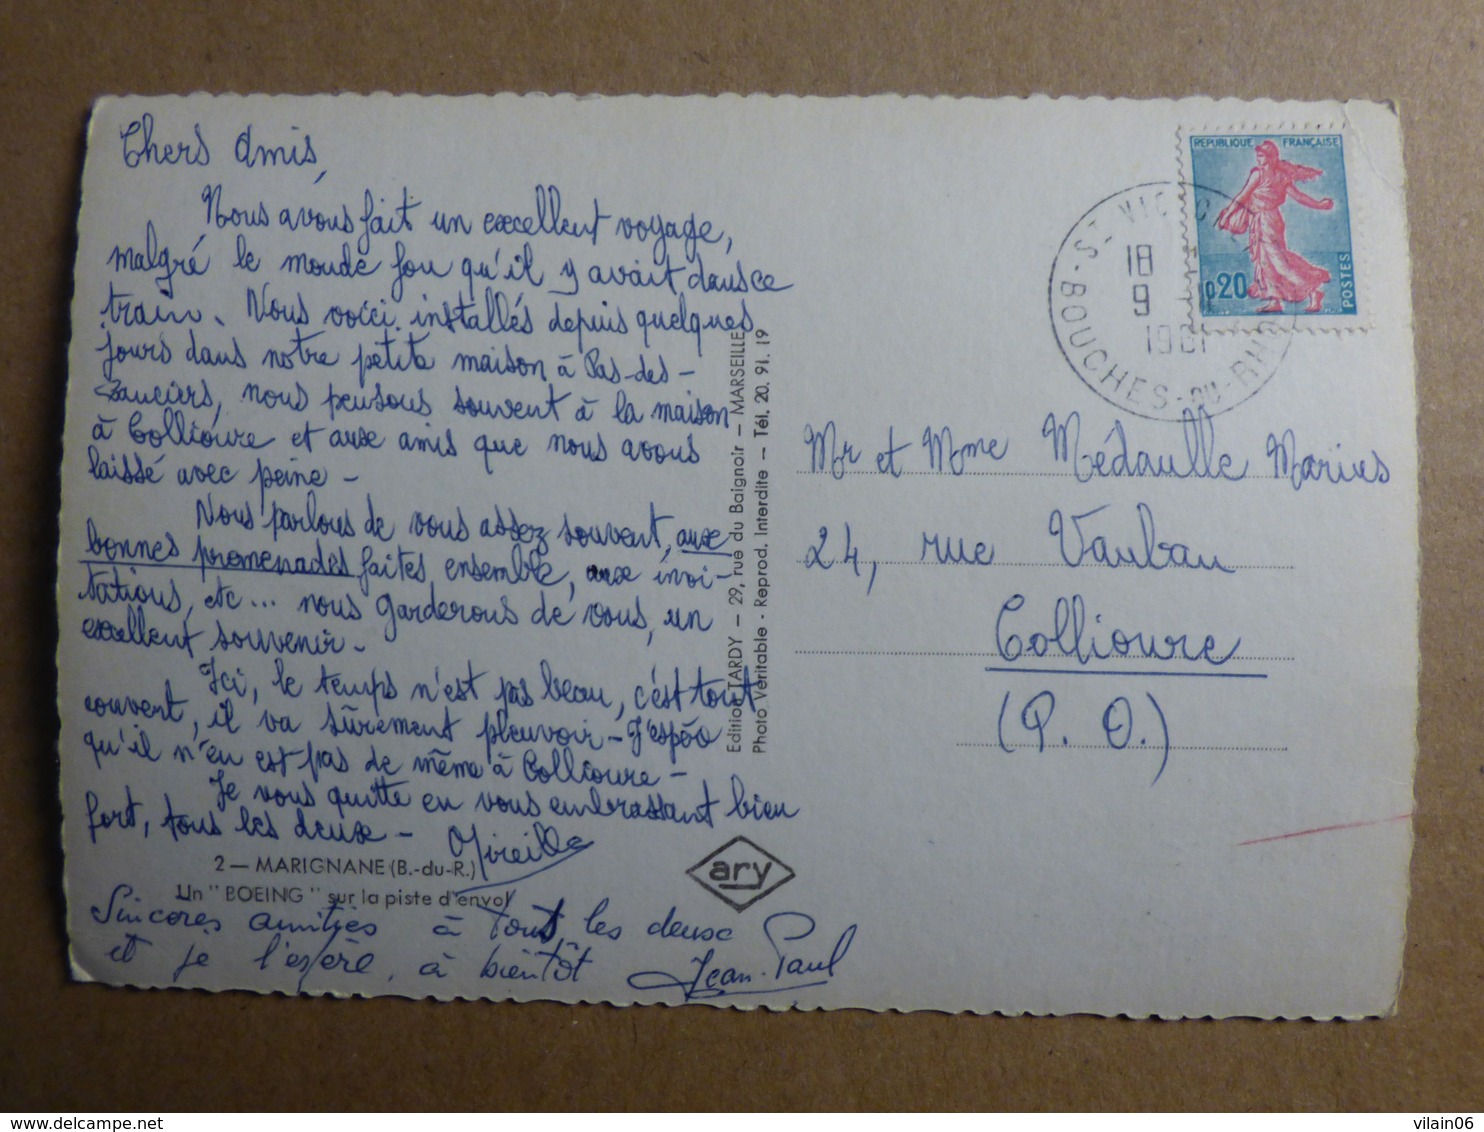 Chers Amis,
Nous avons fait un excellent voyage,
malgré le monde fou qu'il y avait dans ce
train. Nous voici installés depuis quelques
jours dans notre petite maison à Pas-des-
Lanciers, nous pensons souvent à la maison
à Collioure et aux amis que nous avons
laissé avec peine -
Nous parlons de vous assez souvent, aux
bonnes promenades faites ensemble, aux invi-
tations, etc... nous garderons de vous, un
excellent souvenir.
Ici, le temps n'est pas beau, c'est tout
couvert, il va sûrement pleuvoir - J'espère
qu'il n'en est pas de même à Collioure -
Je vous quitte en vous embrassant bien
fort, tous les deux - Mireille
2 — MARIGNANE (B.-du-R.)
Un "BOEING" sur la piste d'envol
Sincères amitiés à tous les deux
et je l'espère, à bientôt Jean-Paul
Edition TARDY — 29, rue du Baignoir — MARSEILLE
Photo Véritable - Reprod. Interdite — Tél. 20. 91. 19
ary
REPUBLIQUE FRANÇAISE
0,20
POSTES
ST VICTORET
18
9
1961
BOUCHES-DU-RHONE
Mr et Mme Médaulle Marius
24, rue Vauban
Collioure
(P. O.)
vilain06